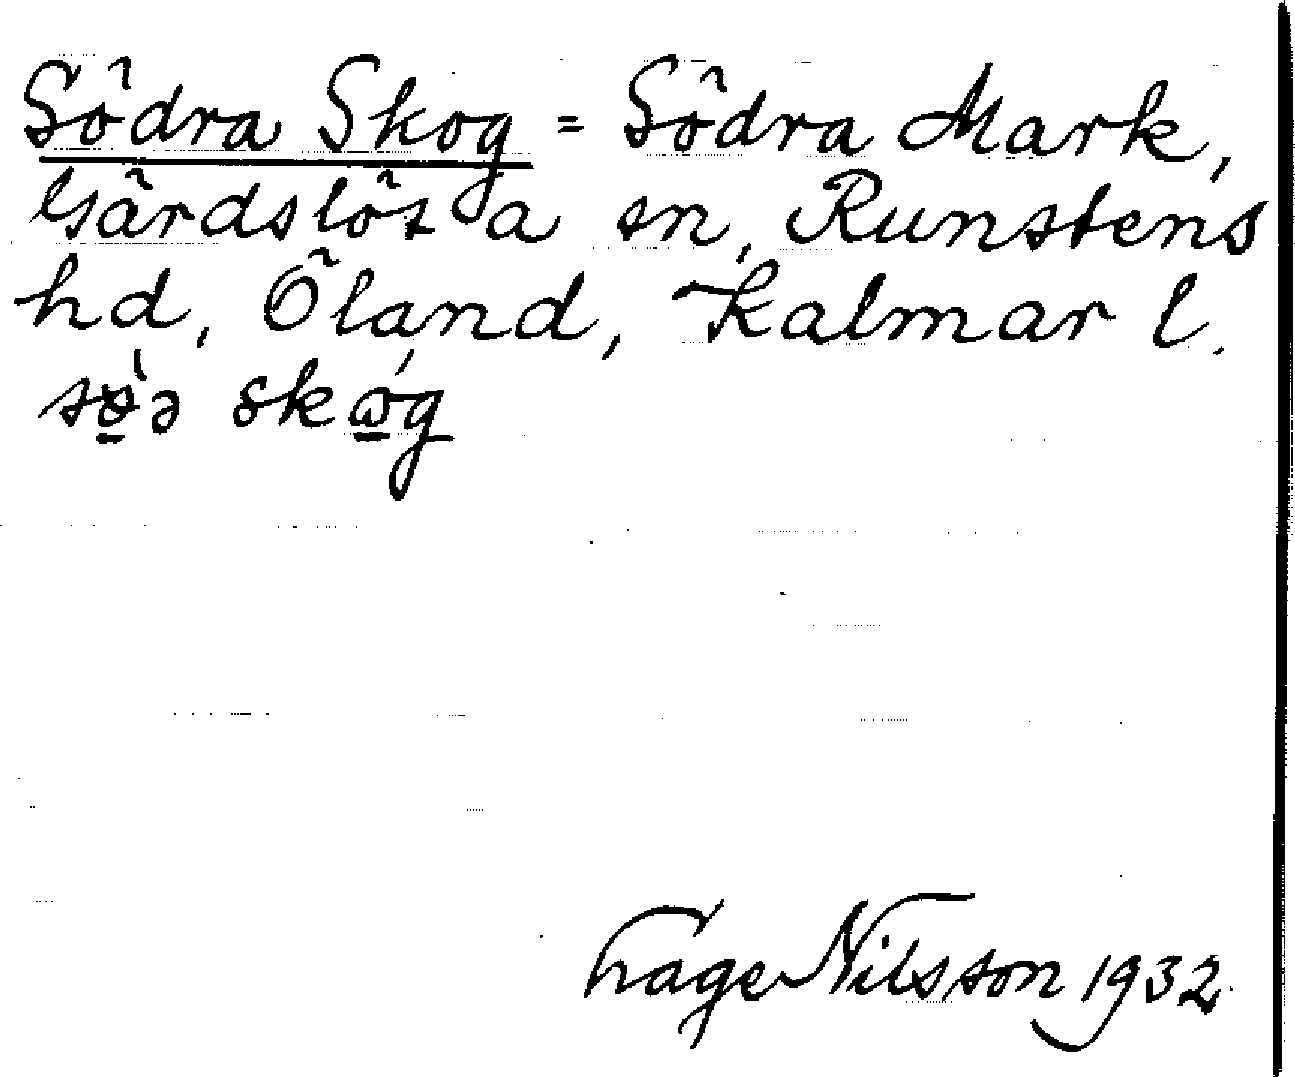 Södra Skog = Södra Mark,
Gärdslösa sn, Runstens
hd, Öland, Kalmar l.
sø̱̀ə skώ̱g
Hage Nilsson 1932